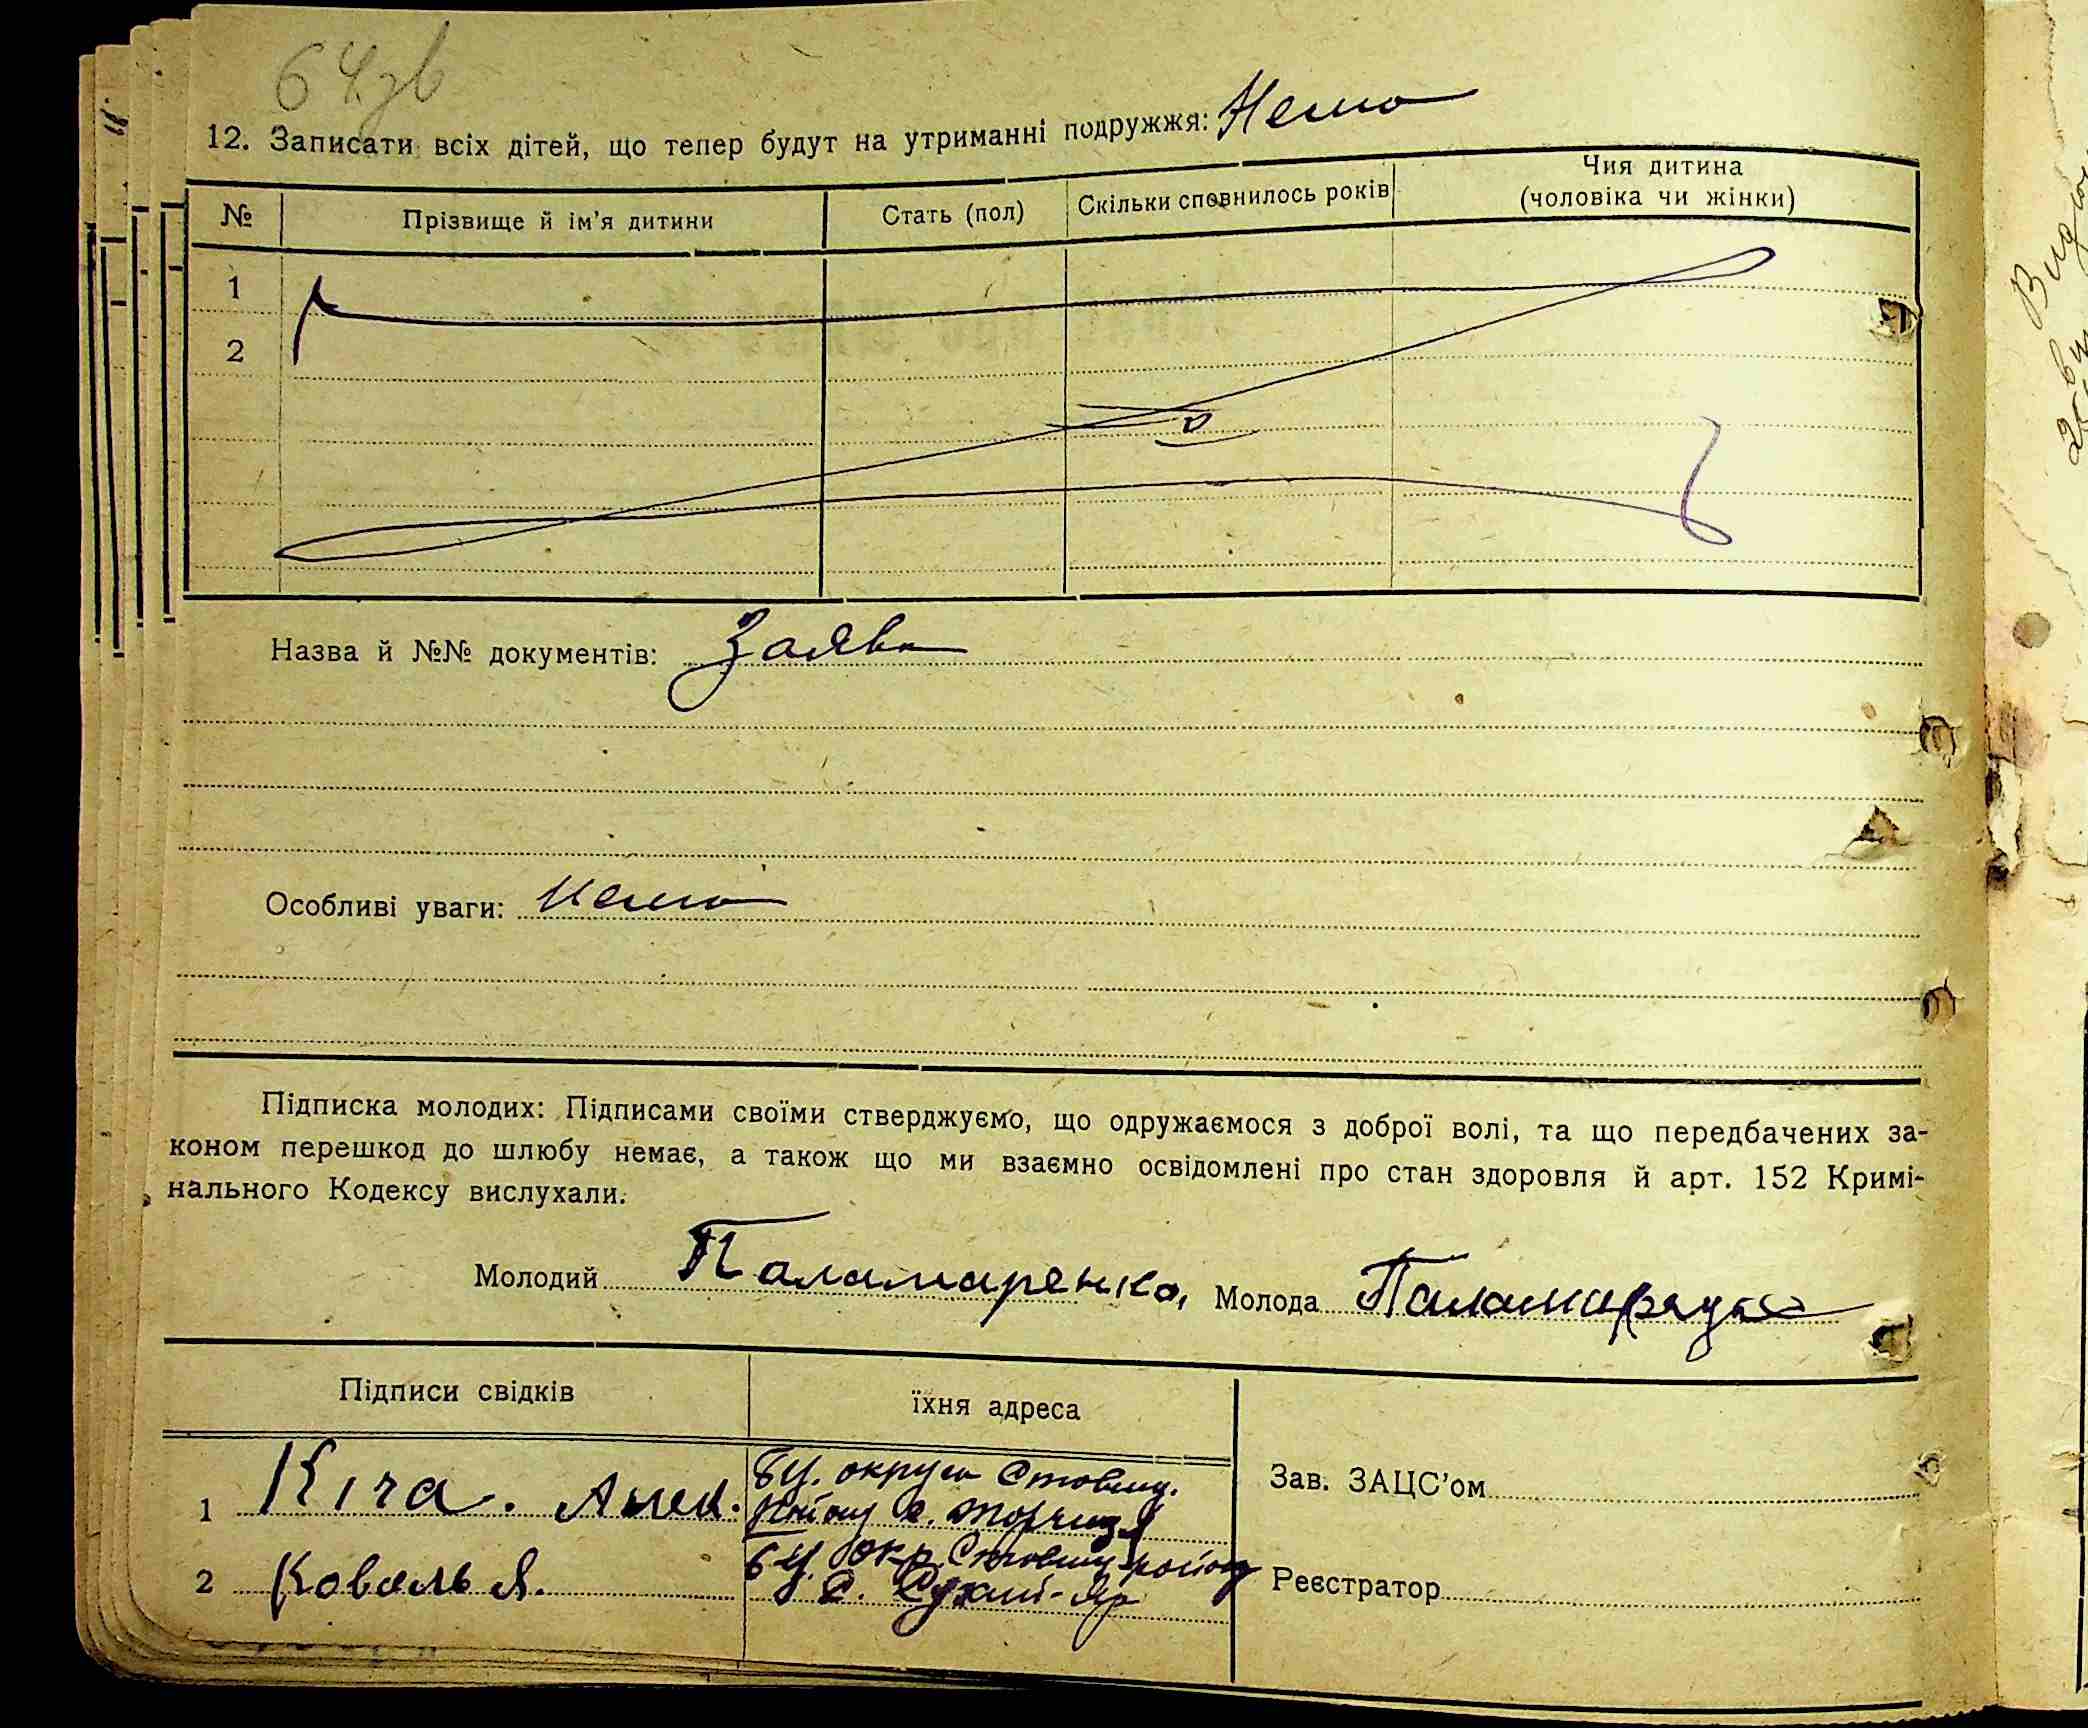 64зв
12. Записати всіх дітей, що тепер будут на утриманні подружжя: Нема
№ Прізвище й ім'я дитини Стать (пол) Скільки сповнилось років Чия дитина
(чоловіка чи жінки)
1
2
Назва й №№ документів: Заява
Особливі уваги: Нема
Підписка молодих: Підписами своїми стверджуємо, що одружаємося з доброї волі, та що передбачених за-
коном перешкод до шлюбу немає, а також що ми взаємно освідомлені про стан здоровля й арт. 152 Кримі-
нального Кодексу вислухали.
Молодий Паламаренко, Молода
Підписи свідків їхня адреса
Зав. ЗАЦС'ом
1 Кіча. БЦ. округи Ставищ.
району с. Торчиця
2 Коваль Я. БЦ. окр. Ставищ району
с. Сухий-Яр
Реєстратор